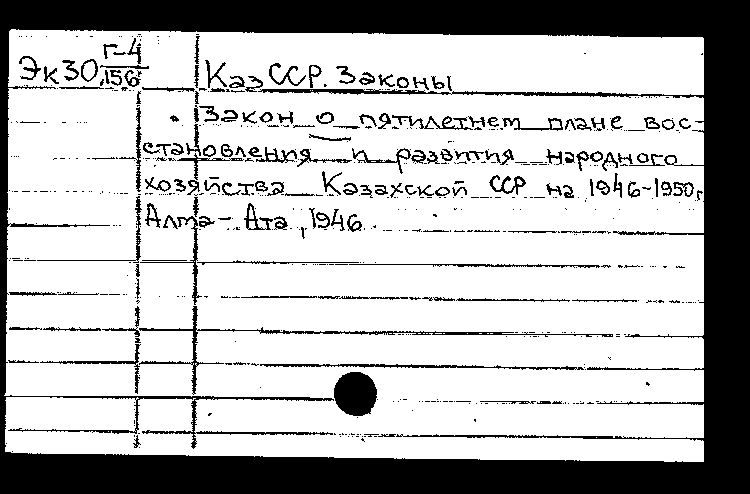 Эк30 г-4/156
КазССР. Законы
Закон о пятилетнем плане вос-
становления и развития народного
хозяйства Казахской ССР на 1946-1950г.
Алма-Ата, 1946.